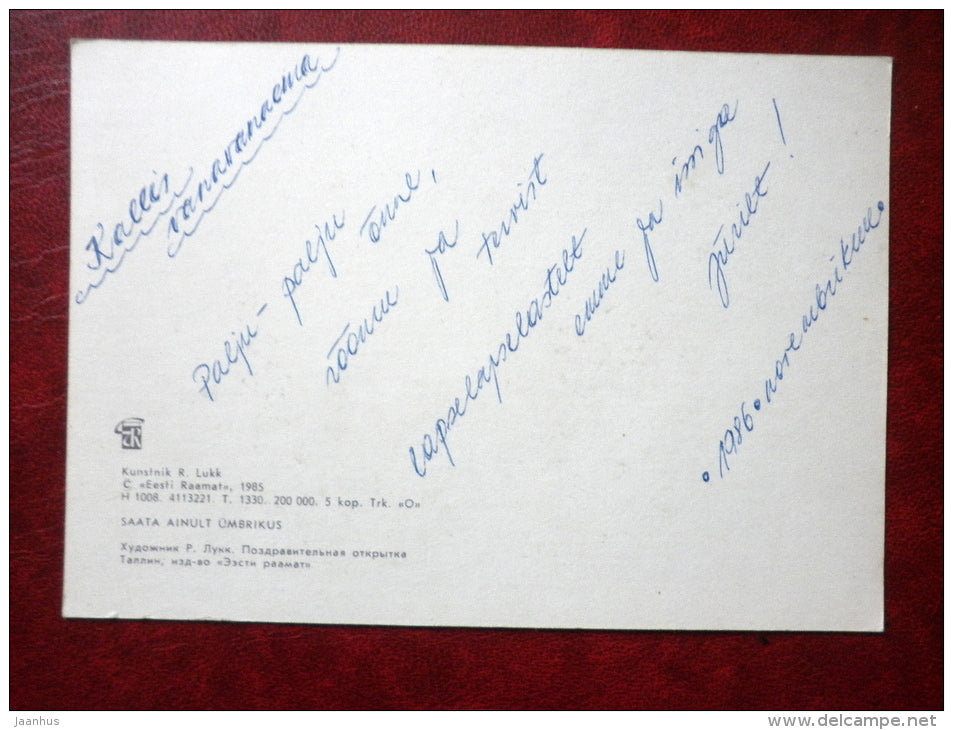 Kallis
vanavanaema
Palju-palju
õnne,
rõõmu ja
tervist
lapselapselastelt
emme ja issiga
Jürilt!
1986. novembrikuu.
Kunstnik R. Lukk
C. «Eesti Raamat», 1985
H 1008. 4113221. T. 1330. 200 000. 5 kop. Trk. «O»
SAATA AINULT ÜMBRIKUS
Художник Р. Лукк. Поздравительная открытка
Таллин, изд-во «Ээсти раамат»
jaanhus
www.delcampe.net